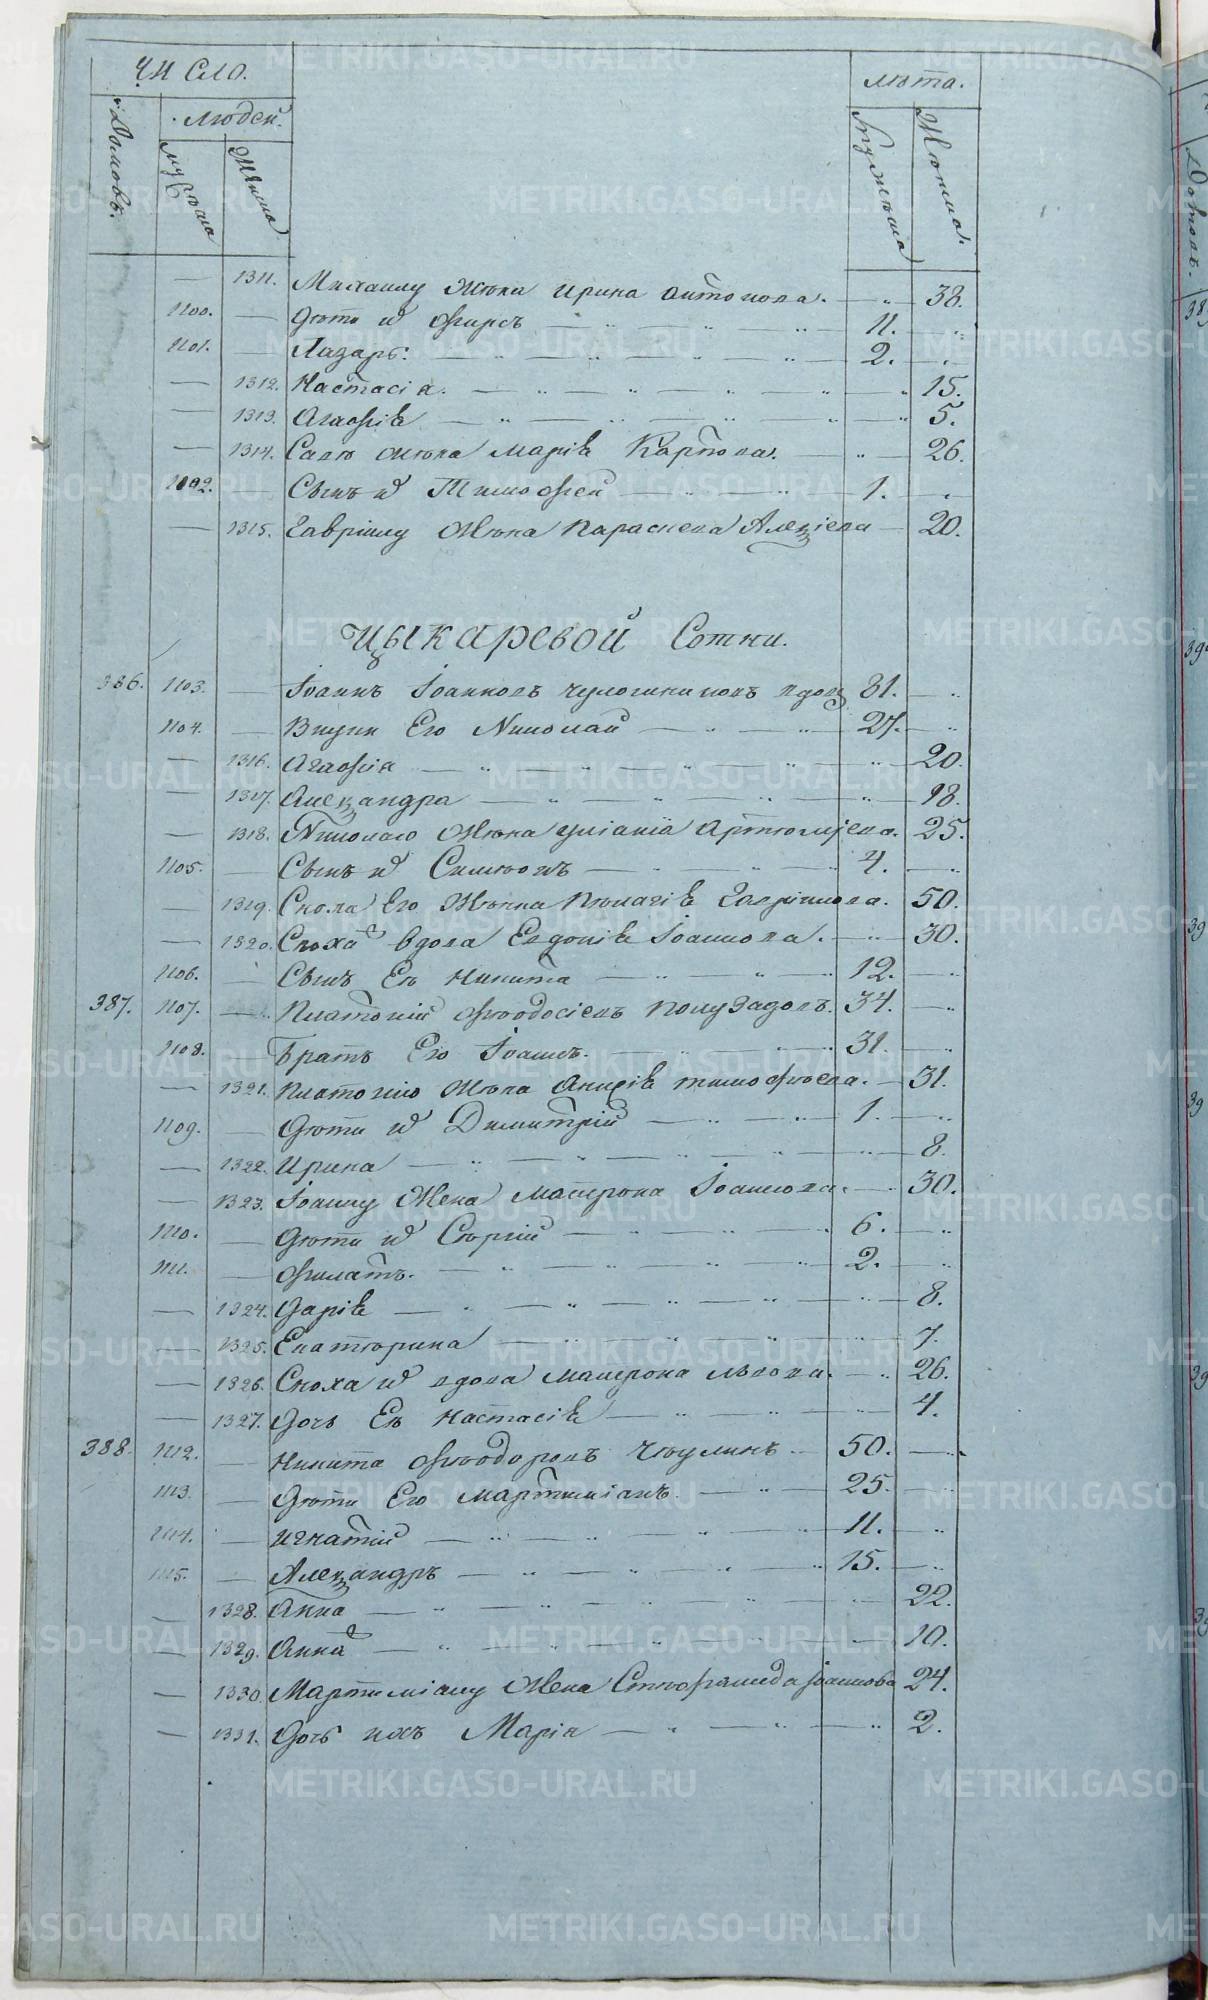 Число.
лѣта.
Домовъ.
людей.
мужеска
женска
мужеска
женска.
— 1311. Михаилу жѣна Ирина Антонова. — „ — 38.
1100. — Дѣти их Фирсъ — „ — „ — 11. — „
1101. — Лазарь. — „ — „ — 2. — „
— 1312. Настасiя. — „ — „ — 15.
— 1313. Агафiя — „ — „ — 5.
— 1314. жѣна Марiя Карпова. — „ — 26.
1102. — Сынъ их Тимофей — „ — 1. — „
— 1315. Гавріилу жѣна Параскева Алексiева — 20.
Цыкаревой Сотни.
386. 1103. — Іоаннъ Іоанновъ вдовъ 81. — „
1104. — Внуки Его Николай — „ — 27. — „
— 1316. Агафiя — „ — „ — 20.
— 1317. Александра — „ — „ — 18.
— 1318. Николаю жѣна Улiанiя Артемiева. 25.
1105. — Сынъ их Симеонъ — „ — 4. — „
— 1319. Сноха Его Жѣнка Пелагiя Гаврiилова. 50.
— 1320. Сноха вдова Евдокiя Іоаннова. — „ — 30.
1106. — Сынъ Ея Никита — „ — 12. — „
387. 1107. — Платонiй Феодосiевъ Полузадовъ. 34. — „
1108. — Братъ Его Іоаннъ. — „ — 31. — „
— 1321. Платонiю жѣна Анисiя Тимофѣева. — 31.
1109. — Дѣти их Димитрiй — „ — 1. — „
— 1322. Ирина — „ — „ — 8.
— 1323. Іоанну Жена Матрона Іоаннова. — „ — 30.
1110. — Дѣти их Сергiй — „ — 6. — „
1111. — Филатъ. — „ — „ — 2. — „
— 1324. Дарiя — „ — „ — 8.
— 1325. Екатерина — „ — „ — 7.
— 1326. Сноха их вдова Матрона Львова. — „ 26.
— 1327. Дочь Ея Настасiя — „ — „ — 4.
388. 1112. — Никита Феодоровъ 50. — „
1113. — Дѣти Его Мартинiанъ. — „ — 25. — „
1114. — Игнатiй — „ — „ — 11. — „
1115. — Александръ — „ — „ — 15. — „
— 1328. Анна — „ — „ — 22.
— 1329. Анна — „ — „ — 10.
— 1330. Мартинiану Жена Стефанида Іоаннова 24.
— 1331. Дочь ихъ Марiя — „ — „ — 2.